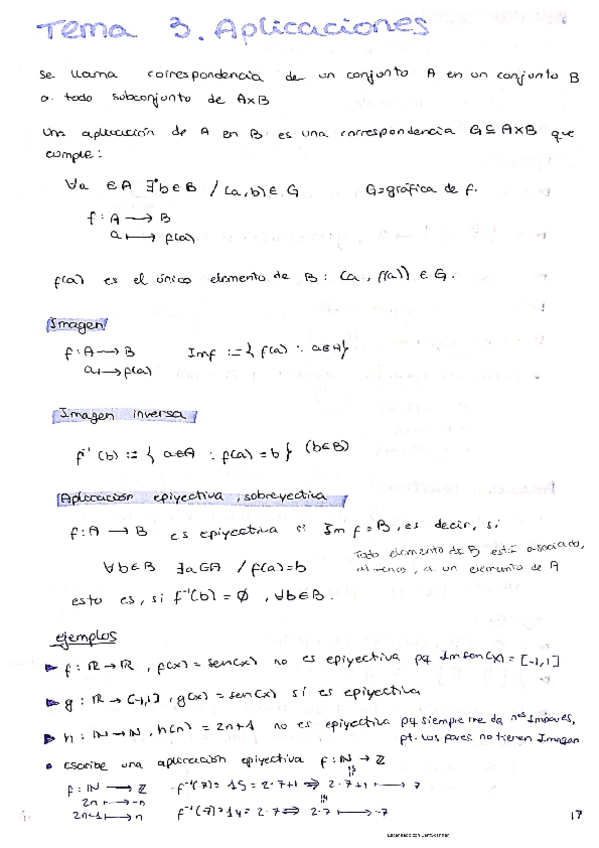 Tema 3. Aplicaciones
Se llama correspondencia de un conjunto A en un conjunto B
a todo subconjunto de AxB
Una aplicación de A en B es una correspondencia G⊆AxB que
cumple:
∀a ∈A ∃*b∈B / (a,b)∈ G G=gráfica de f.
f: A → B
a ↦ f(a)
f(a) es el único elemento de B: (a, f(a)) ∈ G.
Imagen
f: A → B Imf := { f(a) : a∈A}
a ↦ f(a)
Imagen inversa
f⁻¹(b) := { a∈A : f(a) = b } (b∈B)
Aplicación epiyectiva, sobreyectiva
f: A → B es epiyectiva si Im f = B, es decir, si
Todo elemento de B está asociado,
∀b∈B ∃a∈A / f(a)=b
al menos, a un elemento de A
esto es, si f⁻¹(b) = ∅, ∀b∈B.
ejemplos
f: ℝ → ℝ, f(x) = sen(x) no es epiyectiva pq Imsen(x) = [-1,1]
g: ℝ → [-1,1], g(x) = sen(x) sí es epiyectiva
h: ℕ → ℕ, h(n) = 2n+1 no es epiyectiva pq siempre me da nºs impares,
pt. los pares no tienen Imagen
• escribe una aplicación epiyectiva f: ℕ → ℤ
15
f: ℕ → ℤ f⁻¹(7) = 15 = 2·7+1 ⇒ 2·7+1 ↦ 7
2n ↦ -n
14
2n+1 ↦ n f⁻¹(-7) = 14 = 2·7 ⇒ 2·7 ↦ -7
17
Escaneado con CamScanner